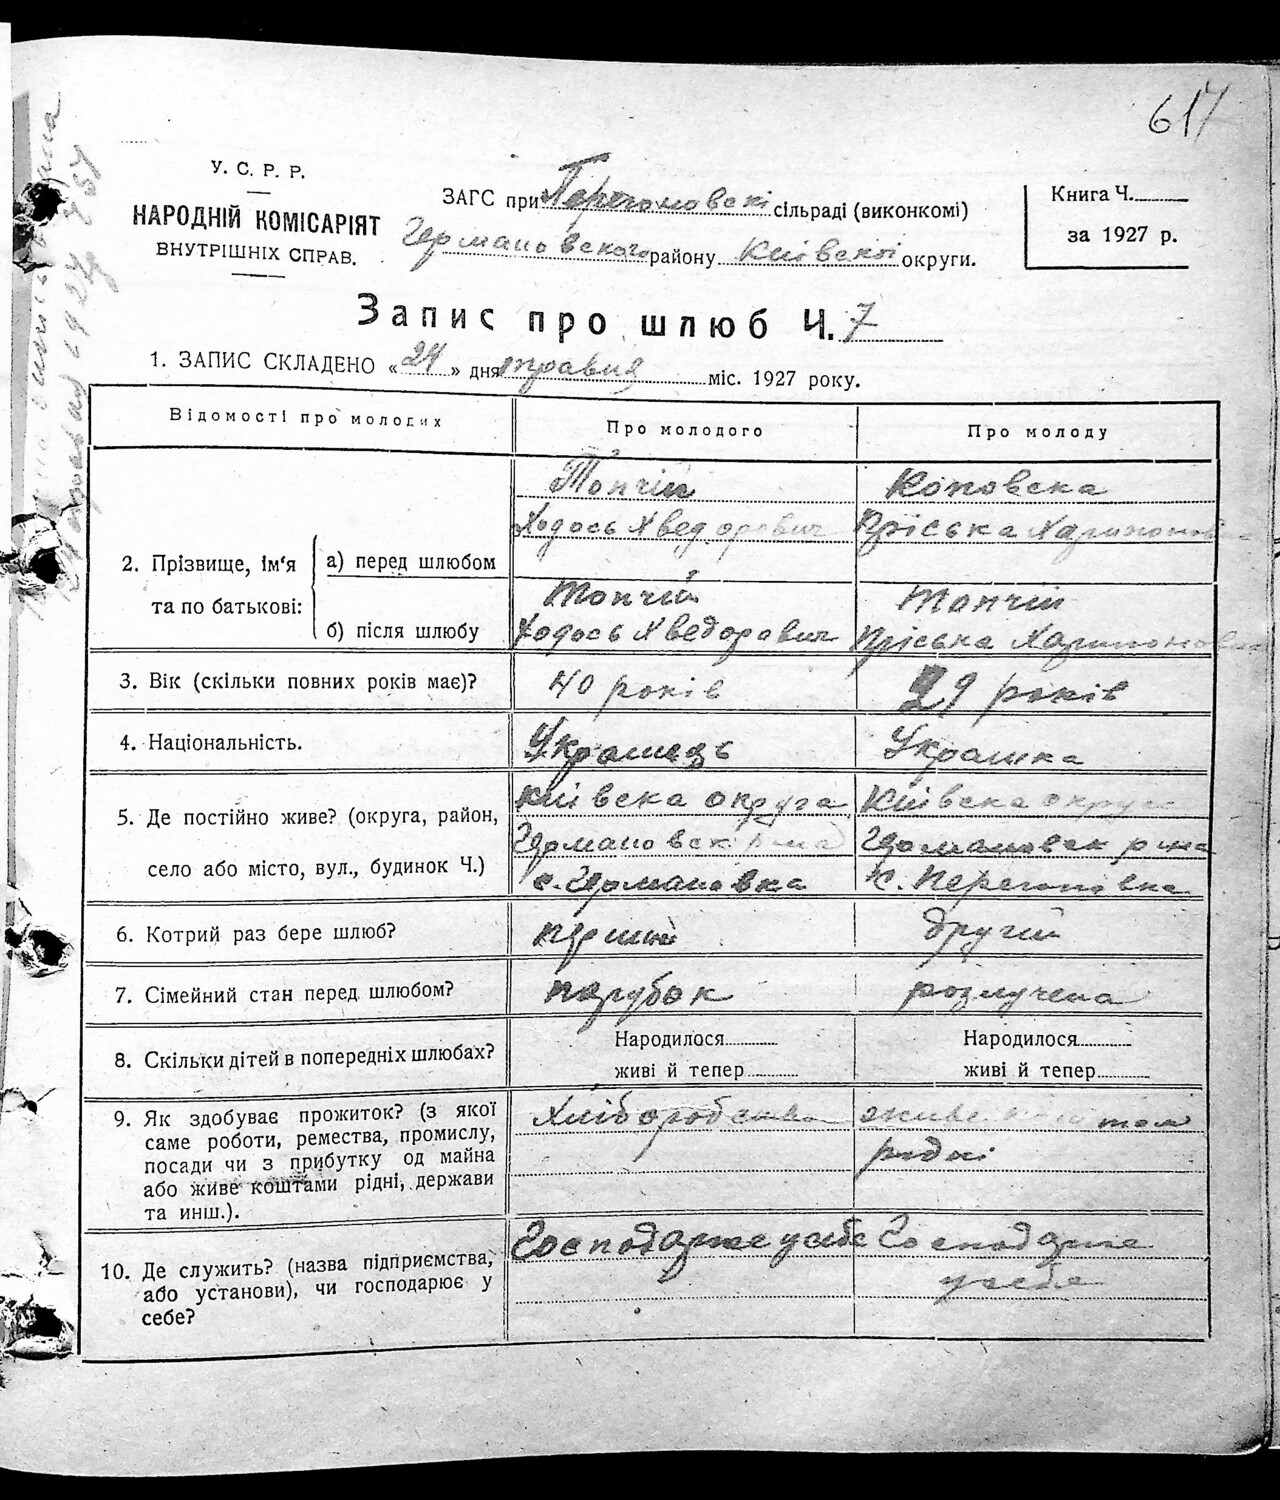 617
У. С. Р. Р.
НАРОДНІЙ КОМІСАРІЯТ
ВНУТРІШНІХ СПРАВ.
ЗАГС при Перегоновскі сільраді (виконкомі)
Германовского району Київскої округи.
Книга Ч.
за 1927 р.
Запис про шлюб Ч. 7
1. ЗАПИС СКЛАДЕНО « 24 » дня травня міс. 1927 року.
Відомості про молодих
Про молодого
Про молоду
2. Прізвище, ім'я та по батькові:
а) перед шлюбом
Топчій
Ходось Хведорович
Коповска
Пріська Харитонов
б) після шлюбу
Топчій
Ходось Хведорович
Топчій
Пріська Харитонов
3. Вік (скільки повних років має)?
40 років
29 років
4. Національність.
Украінець
Украінка
5. Де постійно живе? (округа, район,
село або місто, вул., будинок Ч.)
Київска округа
Германовскі р-на
с. Германовка
Київска округа
Германовск р-на
с. Перегоновка
6. Котрий раз бере шлюб?
перший
другий
7. Сімейний стан перед шлюбом?
парубок
розлучена
8. Скільки дітей в попередніх шлюбах?
Народилося
живі й тепер
Народилося
живі й тепер
9. Як здобуває прожиток? (з якої
саме роботи, ремества, промислу,
посади чи з прибутку од майна
або живе коштами рідні, держави
та инш.).
Хліборобство
живе
рідні
10. Де служить? (назва підприємства,
або установи), чи господарює у
себе?
Господарює у себе
Господарює
у себе